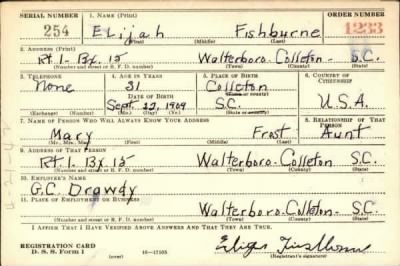 SERIAL NUMBER 1. NAME (Print) ORDER NUMBER
254 Elijah Fishburne 1233
(First) (Middle) (Last)
2. ADDRESS (Print)
Rt. 1- Bx. 15 Walterboro- Colleton- S.C.
(Number and street or R. F. D. number) (Town) (County) (State)
3. TELEPHONE 4. AGE IN YEARS 5. PLACE OF BIRTH 6. COUNTRY OF CITIZENSHIP
None 31 Colleton
DATE OF BIRTH (Town or county)
Sept. 22, 1909 S.C. U.S.A.
(Exchange) (Number) (Mo.) (Day) (Yr.) (State or country)
7. NAME OF PERSON WHO WILL ALWAYS KNOW YOUR ADDRESS 8. RELATIONSHIP OF THAT PERSON
Mary Frost Aunt
(Mr., Mrs., Miss) (First) (Middle) (Last)
9. ADDRESS OF THAT PERSON
Rt. 1. Bx. 15 Walterboro- Colleton S.C.
(Number and street or R. F. D. number) (Town) (County) (State)
10. EMPLOYER'S NAME
G.C. Drawdy
11. PLACE OF EMPLOYMENT OR BUSINESS
Walterboro- Colleton- S.C.
(Number and street or R. F. D. number) (Town) (County) (State)
I AFFIRM THAT I HAVE VERIFIED ABOVE ANSWERS AND THAT THEY ARE TRUE.
REGISTRATION CARD
D. S. S. Form 1 (over)
(Registrant's signature)